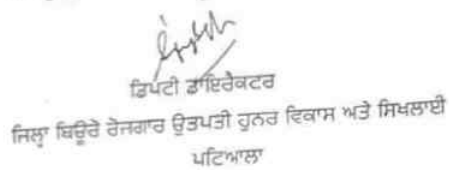 ਡਿਪਟੀ ਡਾਇਰੈਕਟਰ
ਜਿਲ੍ਹਾ ਬਿਊਰੋ ਰੋਜਗਾਰ ਉਤਪਤੀ ਹੁਨਰ ਵਿਕਾਸ ਅਤੇ ਸਿਖਲਾਈ
ਪਟਿਆਲਾ